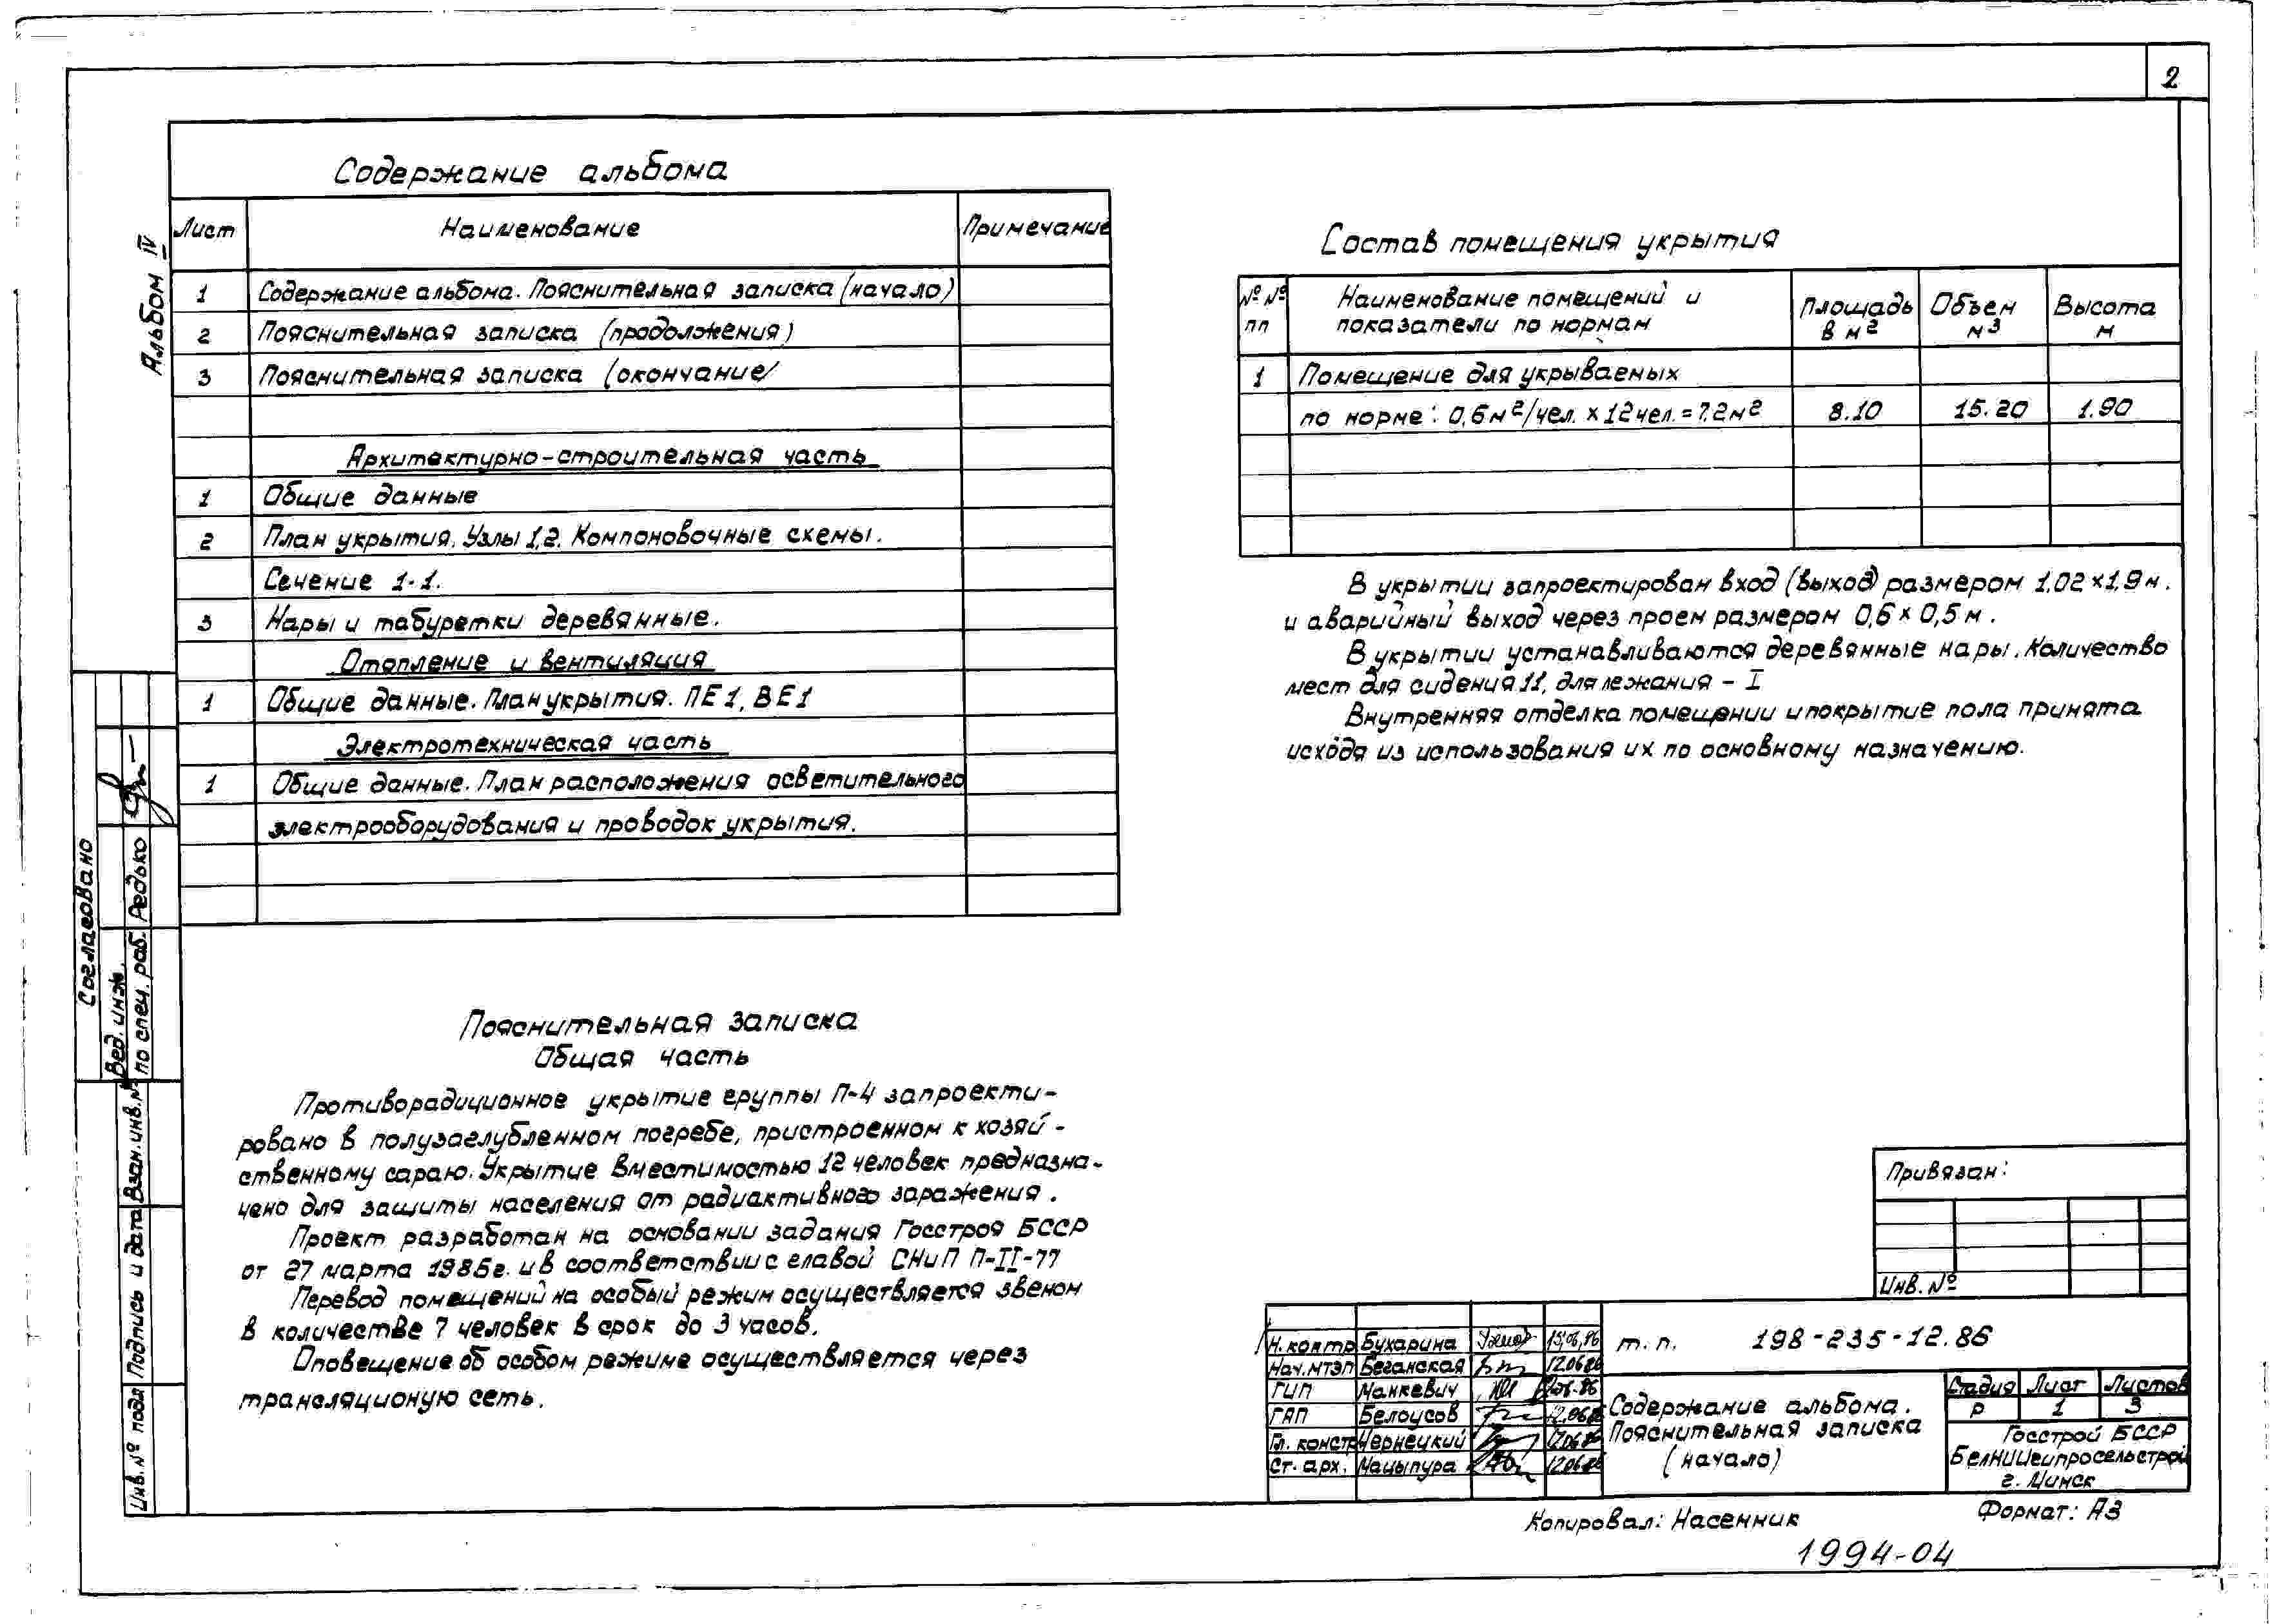 2
Альбом IV
Содержание альбома
Лист Наименование Примечание
1 Содержание альбома. Пояснительная записка (начало)
2 Пояснительная записка (продолжения)
3 Пояснительная записка (окончание/
Архитектурно-строительная часть
1 Общие данные
2 План укрытия. Узлы 1,2. Компоновочные схемы.
Сечение 1-1.
3 Нары и табуретки деревянные.
Отопление и вентиляция
1 Общие данные. План укрытия. ПЕ1, ВЕ1
Электротехническая часть
1 Общие данные. План расположения осветительного
электрооборудования и проводок укрытия.
Пояснительная записка
Общая часть
Противорадиционное укрытие группы П-4 запроекти-
ровано в полузаглубленном погребе, пристроенном к хозяй-
ственному сараю. Укрытие вместимостью 12 человек предназна-
чено для защиты населения от радиактивного заражения.
Проект разработан на основании задания Госстроя БССР
от 27 марта 1985г. и в соответствии с главой СНиП П-II-77
Перевод помещений на особый режим осуществляется звеном
в количестве 7 человек в срок до 3 часов.
Оповещение об особом режиме осуществляется через
трансляционую сеть.
Состав помещения укрытия
№№ пп Наименование помещений и показатели по нормам Площадь в м2 Объем м3 Высота м
1 Помещение для укрываемых
по норме: 0,6м2/чел. х 12чел. = 7.2м2 8.10 15.20 1.90
В укрытии запроектирован вход (выход) размером 1,02×1,9м.
и аварийный выход через проем размером 0,6×0,5м.
В укрытии устанавливаются деревянные нары. Количество
мест для сидения 11, для лежания – I
Внутренняя отделка помещении и покрытие пола принята
исходя из использования их по основному назначению.
Согласовано
Вед. инж.
по спец. раб. Редько
Взан. инв. №
Подпись и дата
Инв. № подл
Привязан:
Инв. №
Н. контр Бухарина 15.06.86
Нач. МТЭП Беганская 12.06.86
ГИП Манкевич
ГАП Белоусов 12.06.86
Гл. констр Чернецкий 12.06.86
Ст. арх. Мацыпура 12.06.86
т. п. 198-235-12.86
Содержание альбома.
Пояснительная записка
(начало)
Стадия Лист Листов
Р 1 3
Госстрой БССР
БелНИИгипросельстрой
г. Минск
Копировал: Насенник
Формат: А3
1994-04